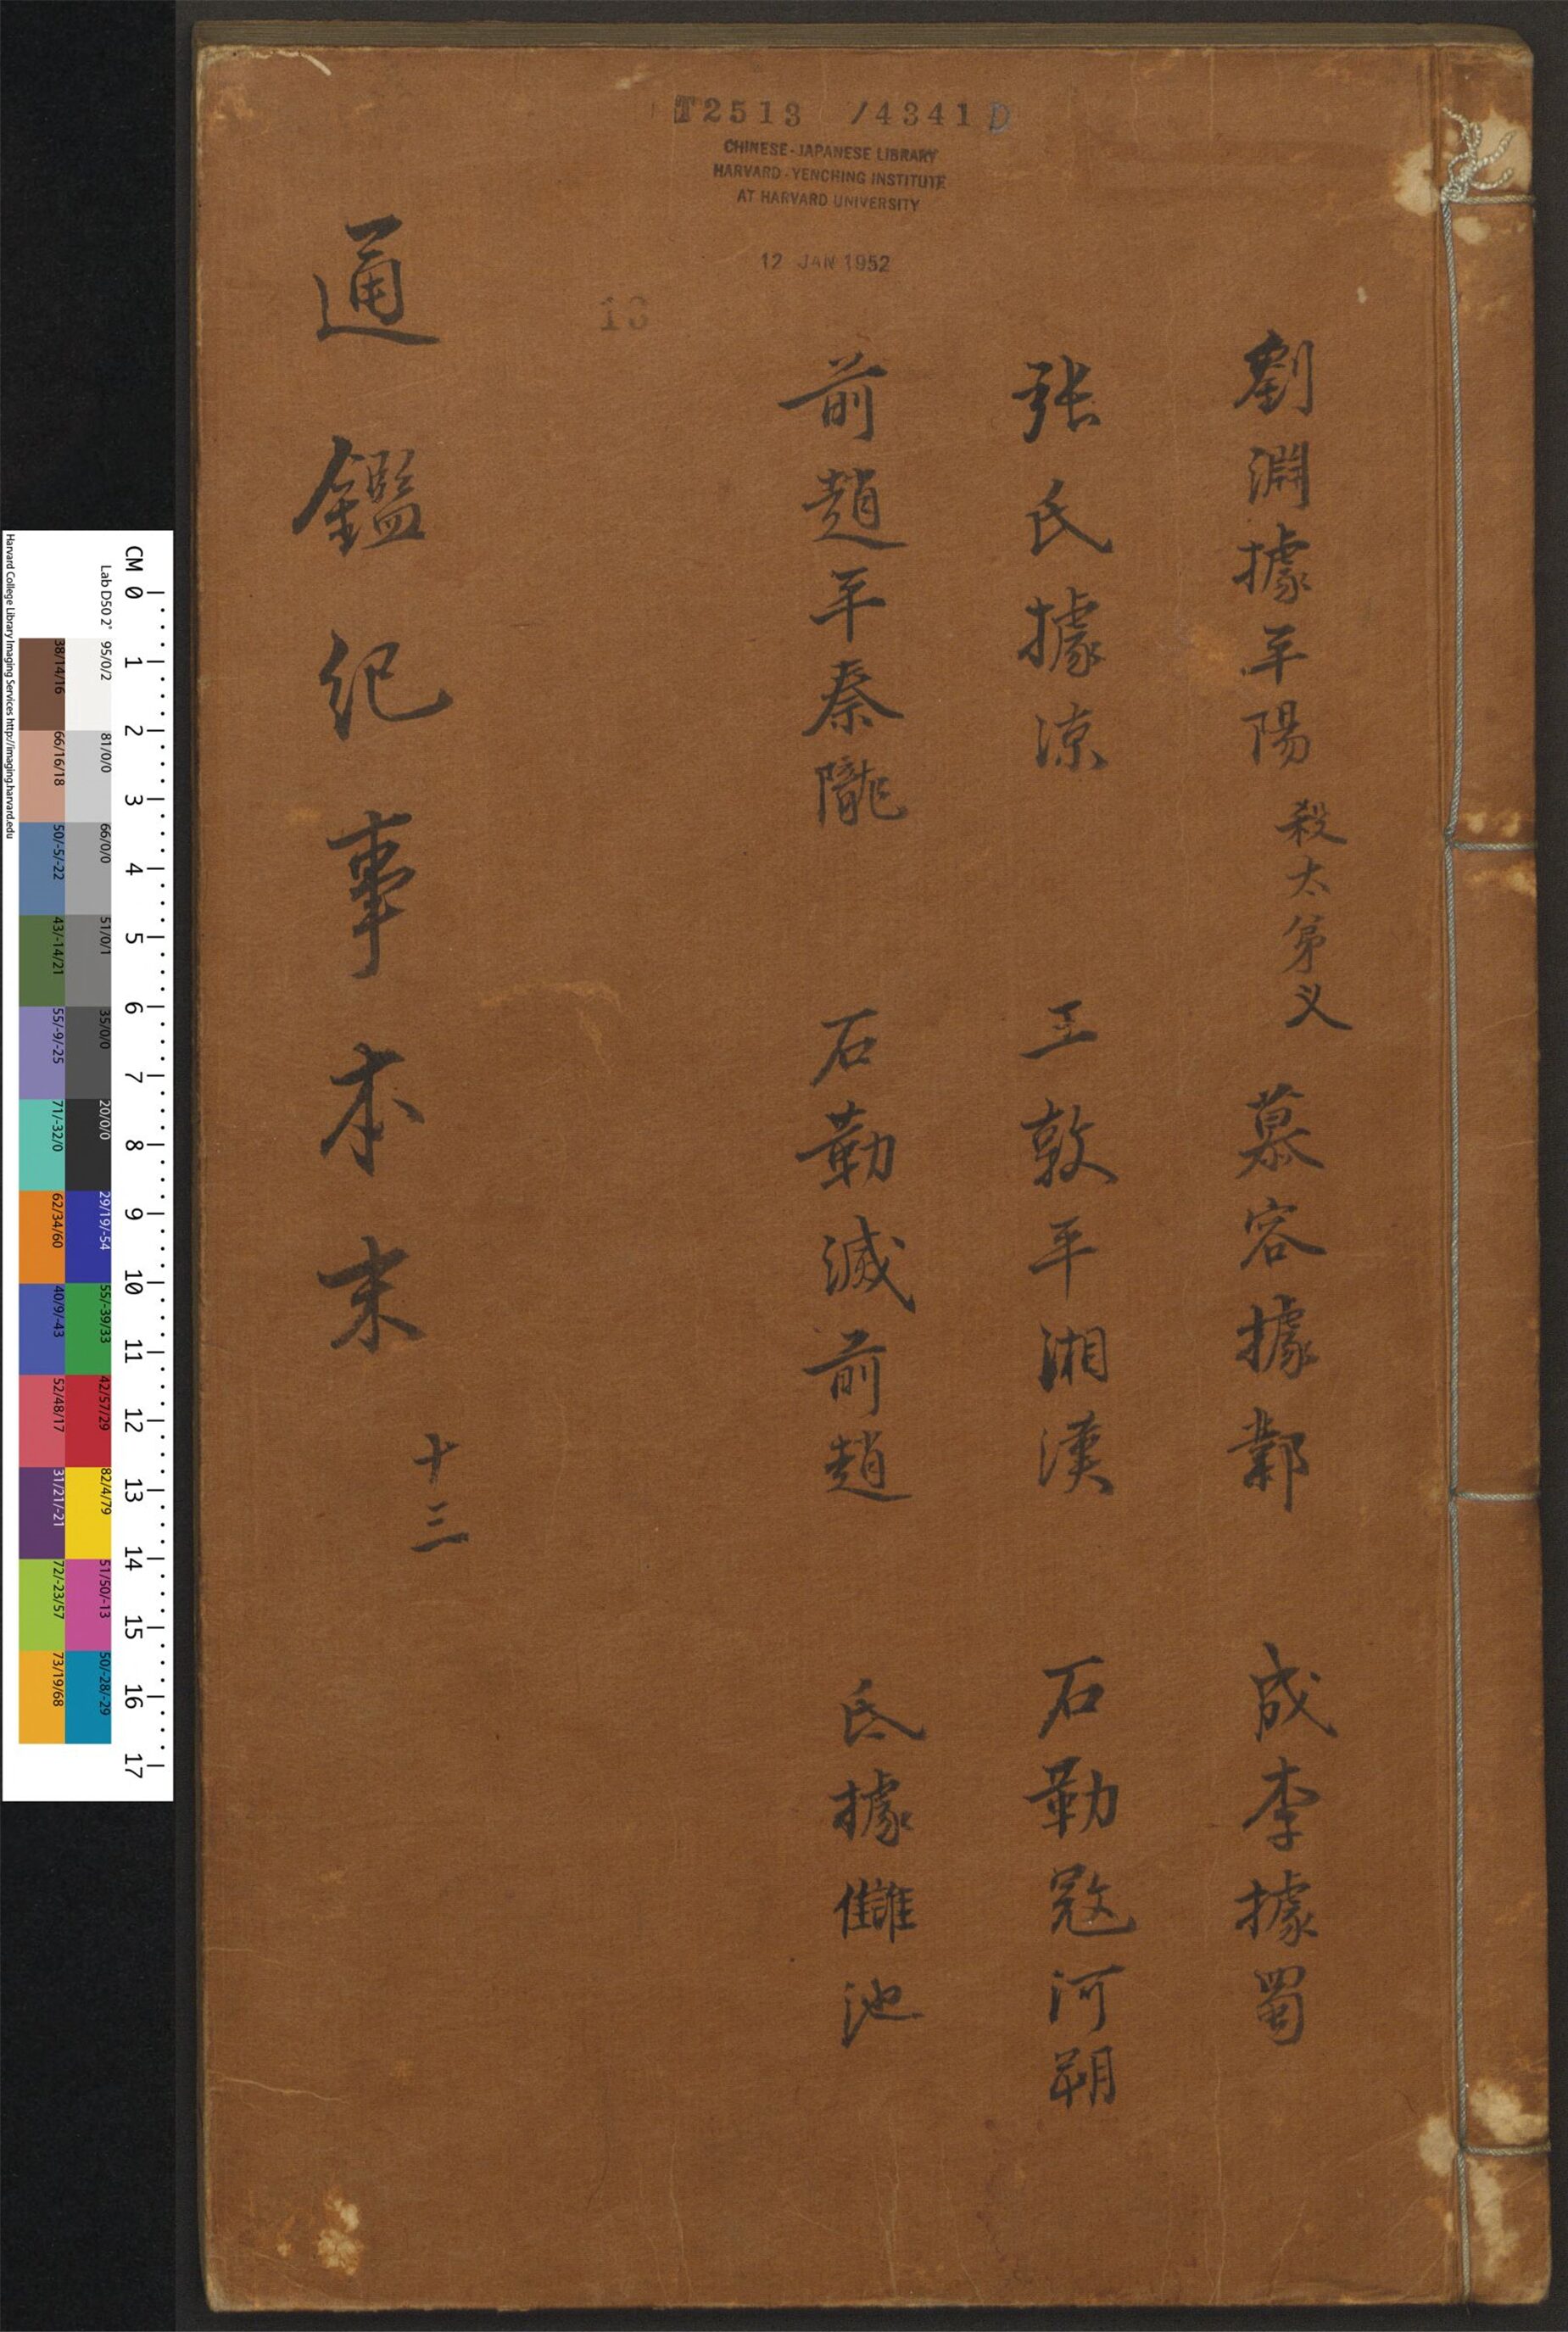 T2513 /4341 D
CHINESE-JAPANESE LIBRARY
HARVARD-YENCHING INSTITUTE
AT HARVARD UNIVERSITY
12 JAN 1952
13
劉淵據平陽 殺太弟乂 慕容據鄴 成李據蜀
張氏據涼 王敦平湘漢 石勒寇河朔
前趙平秦隴 石勒滅前趙 氐據讎池
通鑑紀事本末 十三
CM 0 1 2 3 4 5 6 7 8 9 10 11 12 13 14 15 16 17
Lab D50 2° 95/0/2 81/0/0 66/0/0 51/0/1 35/0/0 20/0/0 29/19/-54 55/-39/33 42/57/29 82/4/79 51/50/-13 50/-28/-29
38/14/16 66/16/18 50/-5/-22 43/-14/21 55/-9/-25 71/-32/0 62/34/60 40/9/-43 52/48/17 31/21/-21 72/-23/57 73/19/68
Harvard College Library Imaging Services http://imaging.harvard.edu